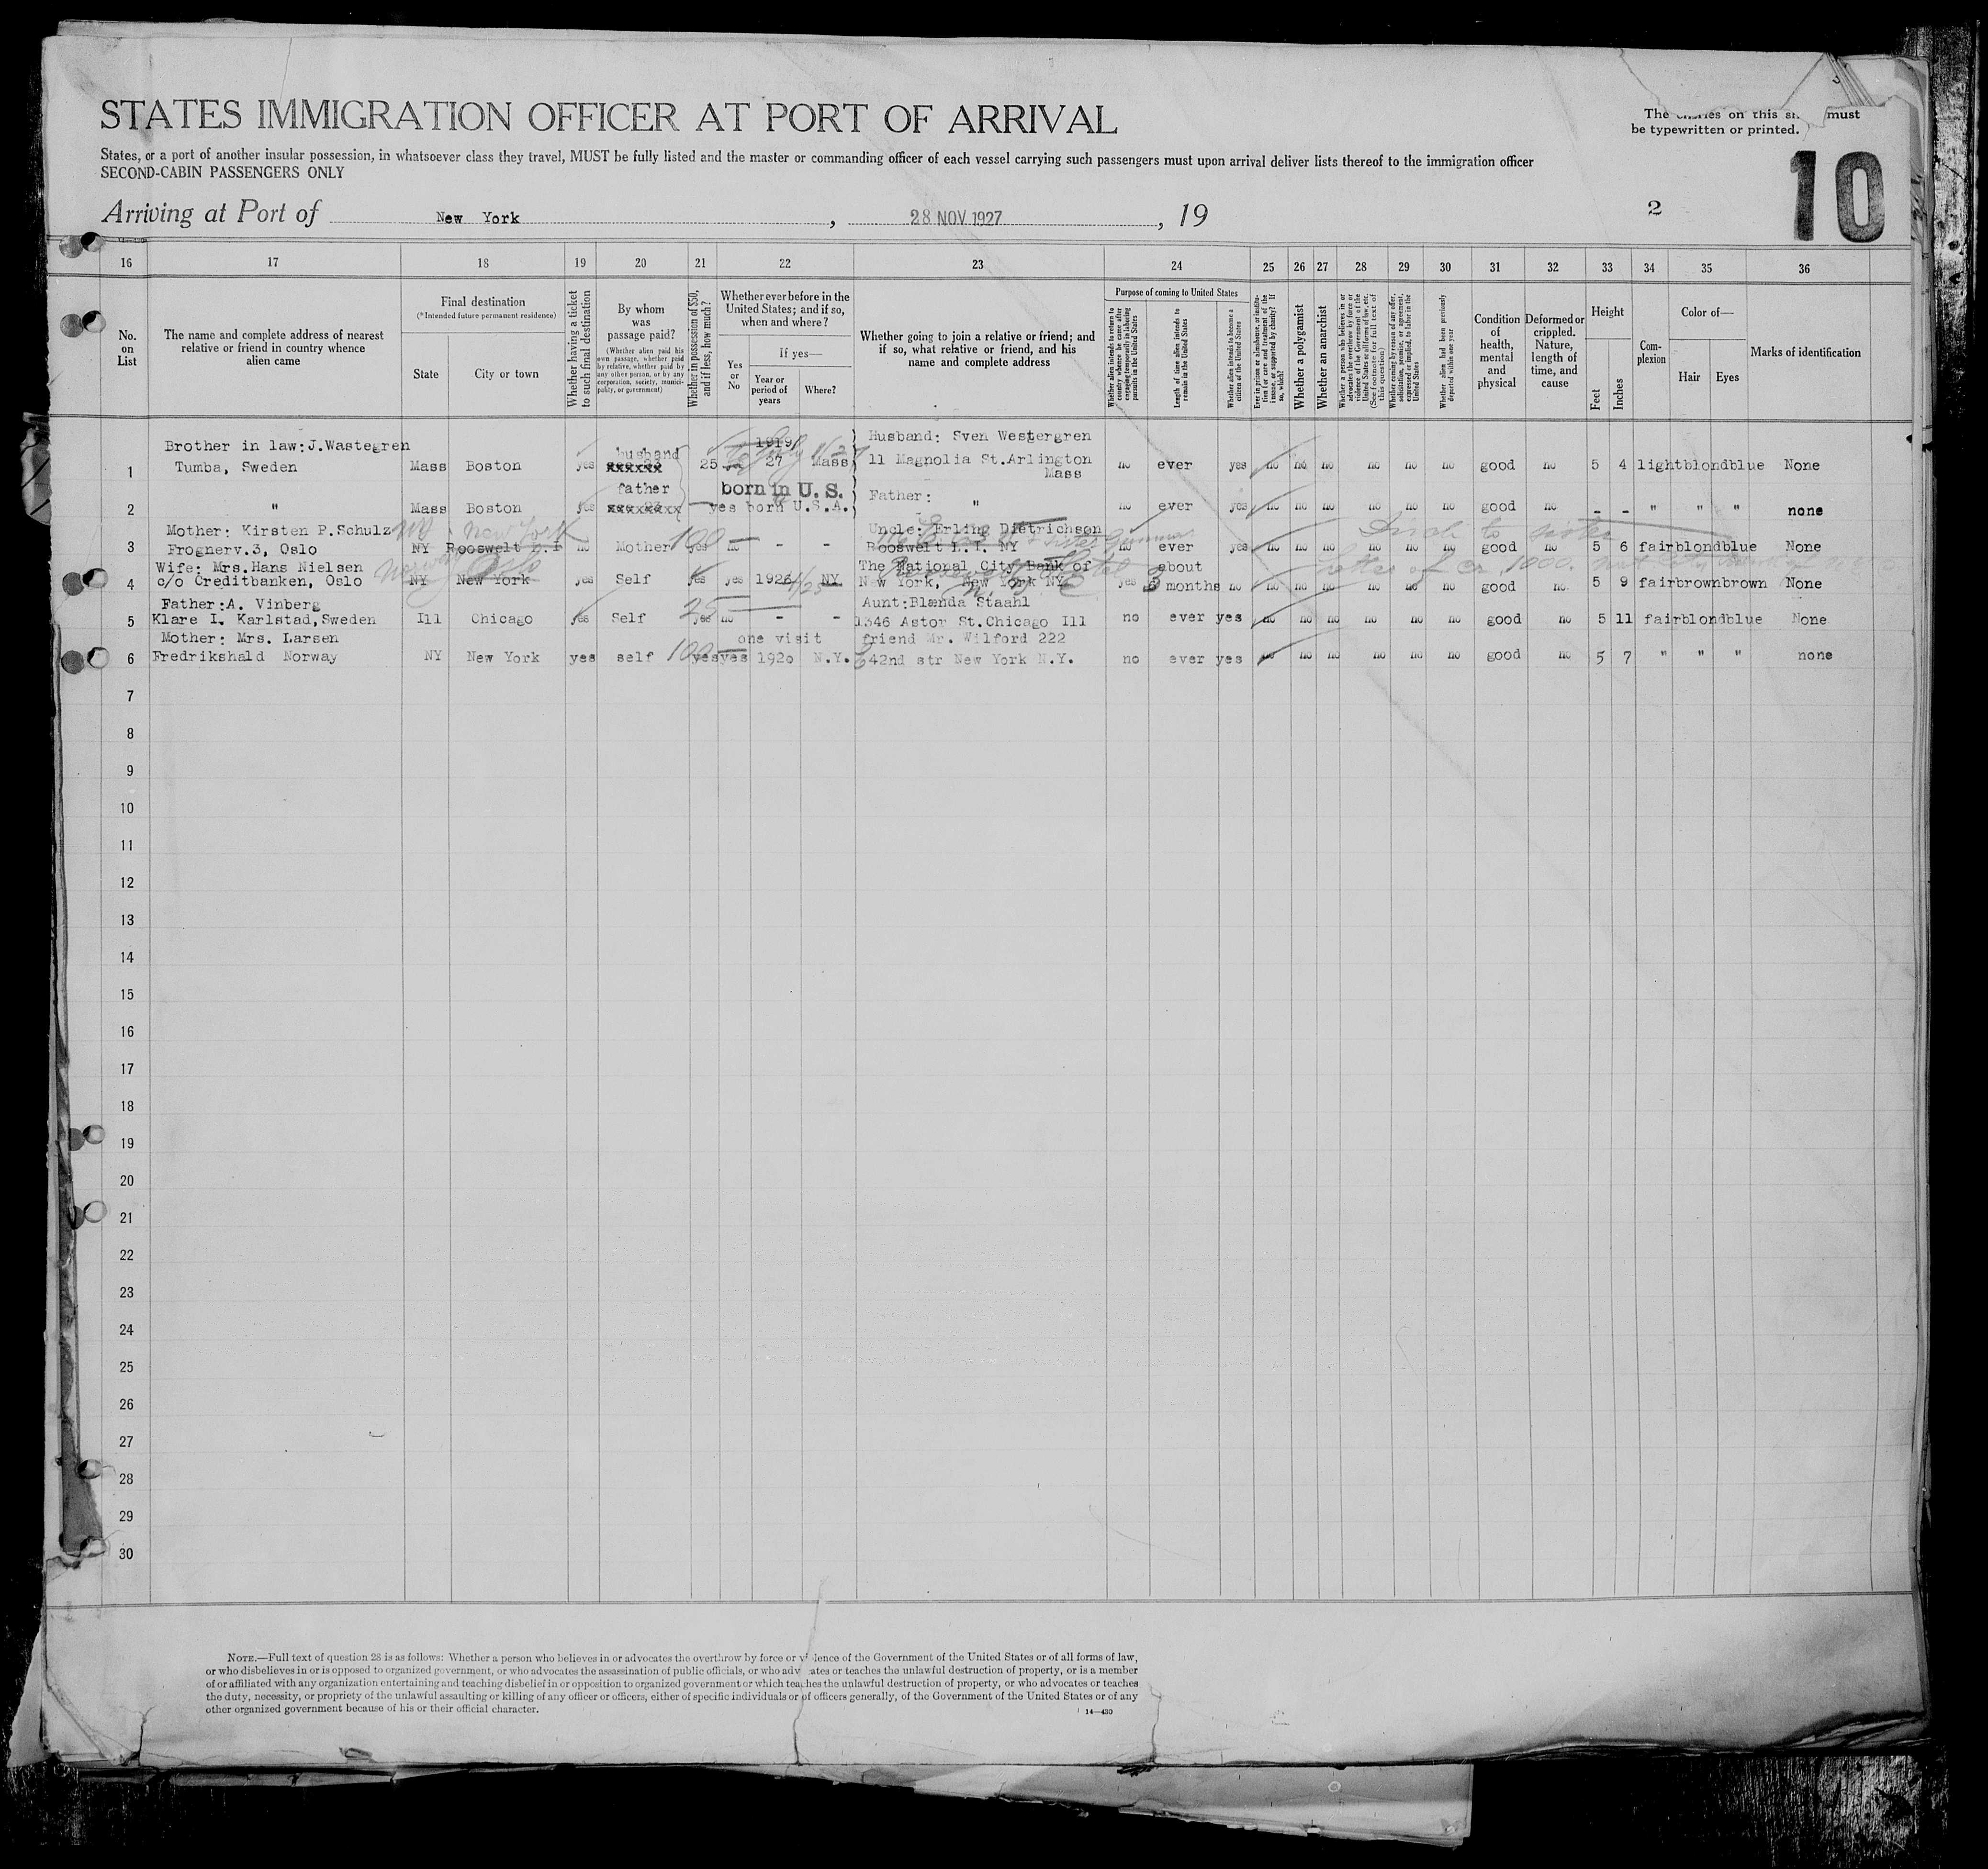 STATES IMMIGRATION OFFICER AT PORT OF ARRIVAL
The on this must
be typewritten or printed.
States, or a port of another insular possession, in whatsoever class they travel, MUST be fully listed and the master or commanding officer of each vessel carrying such passengers must upon arrival deliver lists thereof to the immigration officer
SECOND-CABIN PASSENGERS ONLY
10
Arriving at Port of New York , 28 NOV 1927 , 19
2
16 17 18 19 20 21 22 23 24 25 26 27 28 29 30 31 32 33 34 35 36
No. on List
The name and complete address of nearest relative or friend in country whence alien came
Final destination
(*Intended future permanent residence)
State
City or town
Whether having a ticket to such final destination
By whom was passage paid?
(Whether alien paid his own passage, whether paid by relative, whether paid by any other person, or by any corporation, society, municipality, or government)
Whether in possession of $50, and if less, how much?
Whether ever before in the United States; and if so, when and where?
If yes—
Yes or No
Year or period of years
Where?
Whether going to join a relative or friend; and if so, what relative or friend, and his name and complete address
Purpose of coming to United States
Whether alien intends to return to country whence he came after engaging temporarily in laboring pursuits in the United States
Length of time alien intends to remain in the United States
Whether alien intends to become a citizen of the United States
Ever in prison or almshouse, or institution for care and treatment of the insane, or supported by charity? If so, which?
Whether a polygamist
Whether an anarchist
Whether a person who believes in or advocates the overthrow by force or violence of the Government of the United States or all forms of law, etc. (See footnote for full text of this question)
Whether coming by reason of any offer, solicitation, promise, or agreement, expressed or implied, to labor in the United States
Whether alien had been previously deported within one year
Condition of health, mental and physical
Deformed or crippled. Nature, length of time, and cause
Height
Feet
Inches
Complexion
Color of—
Hair
Eyes
Marks of identification
Brother in law: J. Wastegren husband 1919 Husband: Sven Westergren
1 Tumba, Sweden Mass Boston yes 25 27 Mass 11 Magnolia St. Arlington Mass no ever yes no no no no no no good no 5 4 light blond blue None
father born in U.S. Father:
2 " Mass Boston yes yes born U.S.A. " no ever yes no no no no no no good no - - " " " none
Mother: Kirsten P. Schulz NY New York 100 Uncle: Erling Dietrichson
3 Frognerv. 3, Oslo NY Rooswelt no Mother yes no - - Rooswelt L.I. NY no ever yes no no no no no no good no 5 6 fair blond blue None
Wife: Mrs. Hans Nielsen Norway Oslo The National City Bank of about
4 c/o Creditbanken, Oslo NY New York yes Self yes yes 1926 NY New York, New York NY yes 3 months no no no no no no no good no 5 9 fair brown brown None
Father: A. Vinberg 25 Aunt: Blænda Staahl
5 Klare I. Karlstad, Sweden Ill Chicago yes Self yes no - - 1346 Astor St. Chicago Ill no ever yes no no no no no no good no 5 11 fair blond blue None
Mother: Mrs. Larsen one visit friend Mr. Wilford 222
6 Fredrikshald Norway NY New York yes self 100 yes yes 1920 N.Y. 42nd str New York N.Y. no ever yes no no no no no no good no 5 7 " " " none
7
8
9
10
11
12
13
14
15
16
17
18
19
20
21
22
23
24
25
26
27
28
29
30
NOTE.—Full text of question 28 is as follows: Whether a person who believes in or advocates the overthrow by force or violence of the Government of the United States or of all forms of law,
or who disbelieves in or is opposed to organized government, or who advocates the assassination of public officials, or who advocates or teaches the unlawful destruction of property, or is a member
of or affiliated with any organization entertaining and teaching disbelief in or opposition to organized government or which teaches the unlawful destruction of property, or who advocates or teaches
the duty, necessity, or propriety of the unlawful assaulting or killing of any officer or officers, either of specific individuals or of officers generally, of the Government of the United States or of any
other organized government because of his or their official character.
14—430